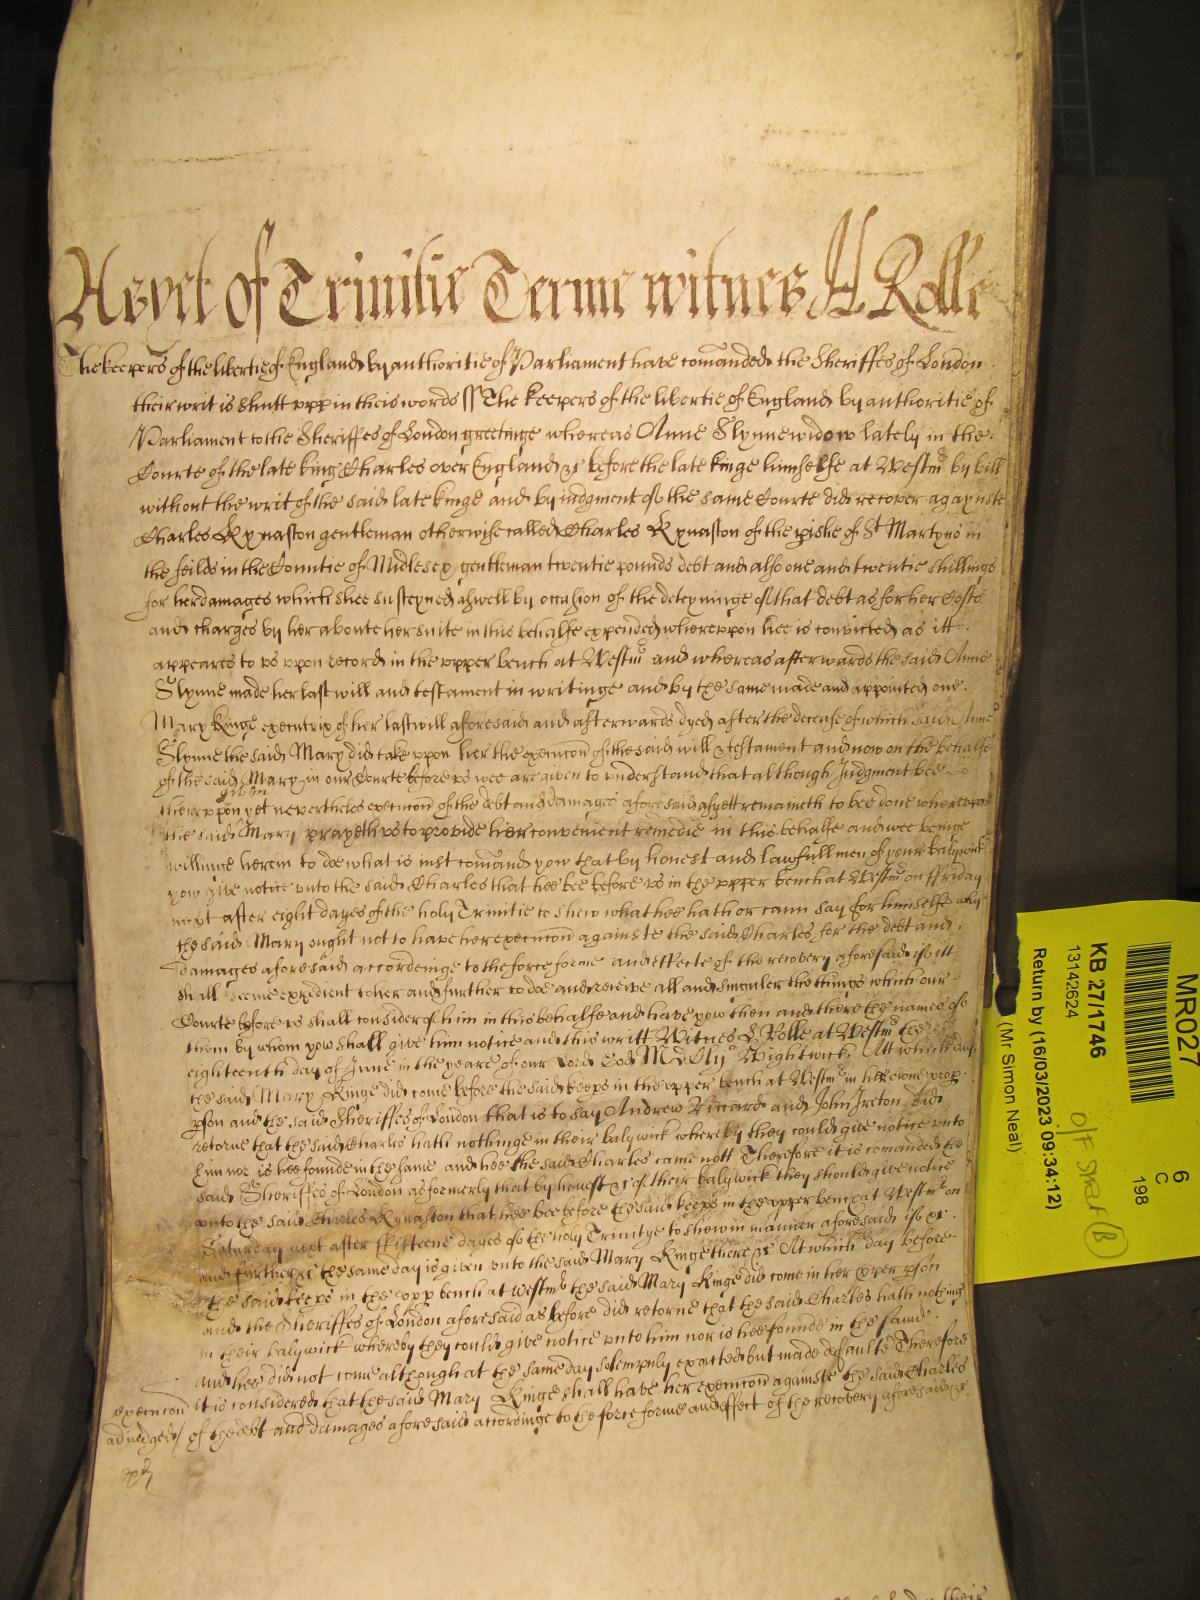 As yet of Trinitie Terme witnes H Rolle
The keepers of the libertie of England by authoritie of Parliament have comanded the Sheriffes of London
their writ is shutt upp in theis words ss The keepers of the libertie of England by authoritie of
Parliament to the Sheriffes of London greetinge whereas Anne Slynne widow lately in the
Courte of the late king Charles over England &c before the late kinge himselfe at Westm by bill
without the writ of the said late kinge and by iudgment of the same Courte did recover agaynste
Charles Kynaston gentleman otherwise called Charles Kynaston of the pishe of St Martyns in
the feilds in the Countie of Midlesex gentleman twentie pounds debt and also one and twentie shillings
for her damages which shee susteyned aswell by occasion of the deteyninge of that debt as for her Costs
and charges by her aboute her suite in this behalfe expended whereuppon hee is convicted as itt
appeares to us upon record in the upper bench at Westm and whereas afterwards the said Anne
Slynne made her last will and testament in writinge and by the same made and appointed one
Mary Kinge executrix of her last will aforesaid and afterwards dyed after the decease of which said Anne
Slynne the said Mary did take upon her the execucon of the said will & testament and now on the behalfe
of the said Mary in our Courte before us wee are given to understand that although Judgment bee
given
thereuppon yet neverthelés execucon of the debt and damages aforesaid as yett remaineth to bee done whereupon
the said Mary prayeth us to provide her convenient remedie in this behalfe and wee beinge
willinge herein to doe what is iust comand yow that by honest and lawfull men of your balywick
yow give notice unto the said Charles that hee bee before us in the upper bench at Westm on ffriday
next after eight dayes of the holy Trinitie to shew what hee hath or cann say for himselfe why
the said Mary ought not to have her execucon againste the said Charles for the debt and
damages aforesaid accordeinge to the force forme and effecte of the recovery aforesaid if itt
shall seeme expedient to her and further to doe and receive all and singuler the things which our
Courte before us shall consider of him in this behalfe and have yow then and there the names of
them by whom yow shall give him notice and this writt Witnes H Rolle at Westm the
eighteenth day of June in the yeare of our Lord God MDCLIJ Wightwick Att which day
the said Mary Kinge did come before the said keeps in the upper bench at Westm in her owne prop
pson and the said Sheriffes of London that is to say Andrew Riccard and John Ireton did
retorne that the said Charles hath nothinge in their balywick whereby they could give notice unto
him nor is hee founde in the same and hee the said Charles came nott Therefore it is comanded the
said Sheriffes of London as formerly that by honest &c of their balywick they should give notice
unto the said Charles Kynaston that hee bee before the said keeps in the upper bench at Westm on
Saturday next after ffifteene dayes of the holy Trinitye to shew in manner aforesaid if &c
and further &c the same day is given unto the said Mary Kinge there &c At which day before
the said keeps in the upp bench at Westm the said Mary Kinge did come in her pper pson
and the Sheriffes of London aforesaid as before did retorne that the said Charles hath nothing
in their balywick whereby they could give notice unto him nor is hee founde in the same
and hee did not come although at the same day solempnly exacted but made defaulte Therefore
execucon it is considered that the said Mary Kinge shall have her execucon againste the said Charles
adiudged / of the debt and damages aforesaid accordinge to the force forme and effect of the recovery aforesaid &c
MR027
6
C
198
KB 27/1746
13142624
O/F SHELF (B)
Return by (16/03/2023 09:34:12)
(Mr Simon Neal)